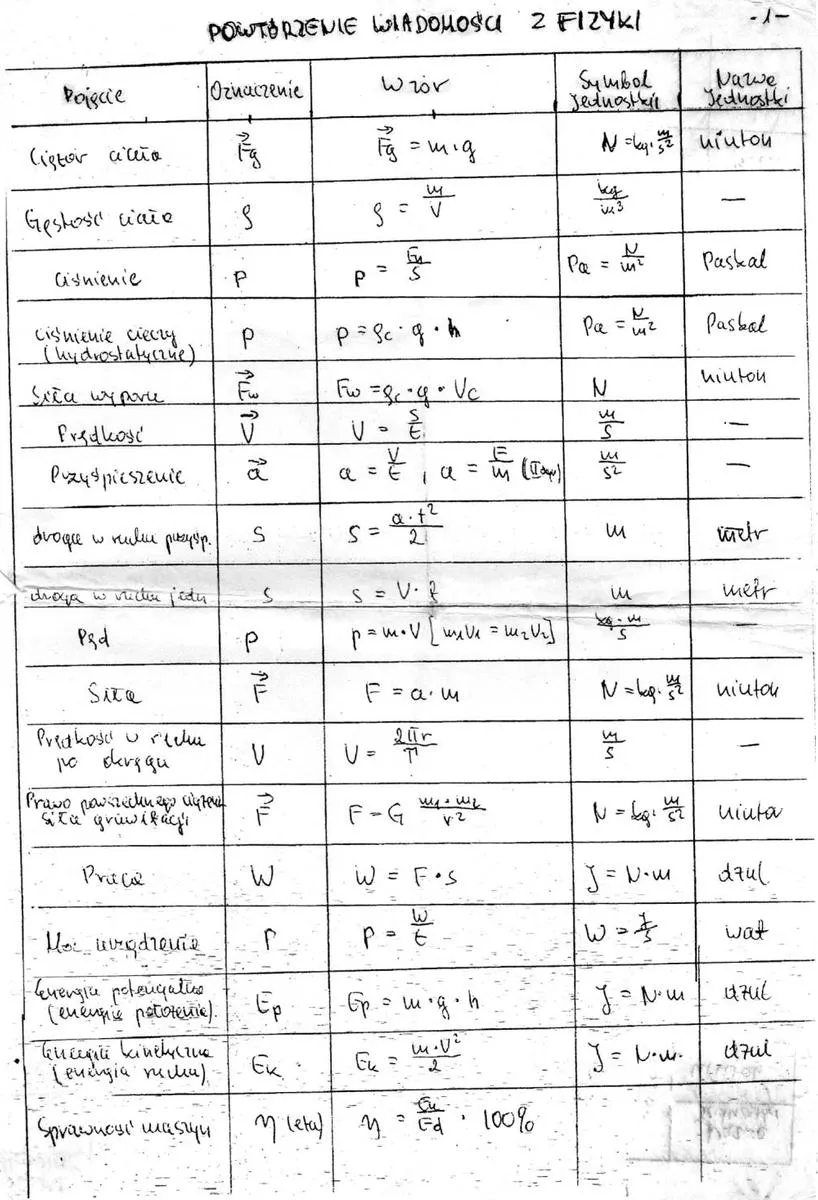 POWTÓRZENIE WIADOMOŚCI Z FIZYKI -1-
Pojęcie Oznaczenie Wzór Symbol jednostki Nazwa jednostki
Ciężar ciała F⃗g F⃗g = m·g N = kg·m/s² niuton
Gęstość ciała ρ ρ = m/V kg/m³ —
ciśnienie p p = Fn/S Pa = N/m² Paskal
ciśnienie cieczy (hydrostatyczne) p p = ρc · g · h Pa = N/m² Paskal
Siła wyporu F⃗w Fw = ρc · g · Vc N niuton
Prędkość V⃗ V = s/t m/s —
Przyśpieszenie a⃗ a = V/t , a = F/m (II dyn) m/s² —
droga w ruchu przyśp. s s = a·t²/2 m metr
droga w ruchu jedn s s = V·t m metr
Pęd p p = m·V [m₁V₁ = m₂V₂] kg·m/s —
Siła F⃗ F = a·m N = kg·m/s² niuton
Prędkość w ruchu po okręgu V V = 2Πr/T m/s —
Prawo powszechnego ciążenia siła grawitacji F⃗ F = G m₁·m₂/r² N = kg·m/s² niuton
Praca W W = F·s J = N·m dżul
Moc urządzenia P P = W/t W = J/s wat
Energia potencjalna (energia położenia) Ep Ep = m·g·h J = N·m dżul
Energia kinetyczna (energia ruchu) Ek Ek = m·V²/2 J = N·m dżul
Sprawność maszyn η (eta) η = Eu/Ed · 100%